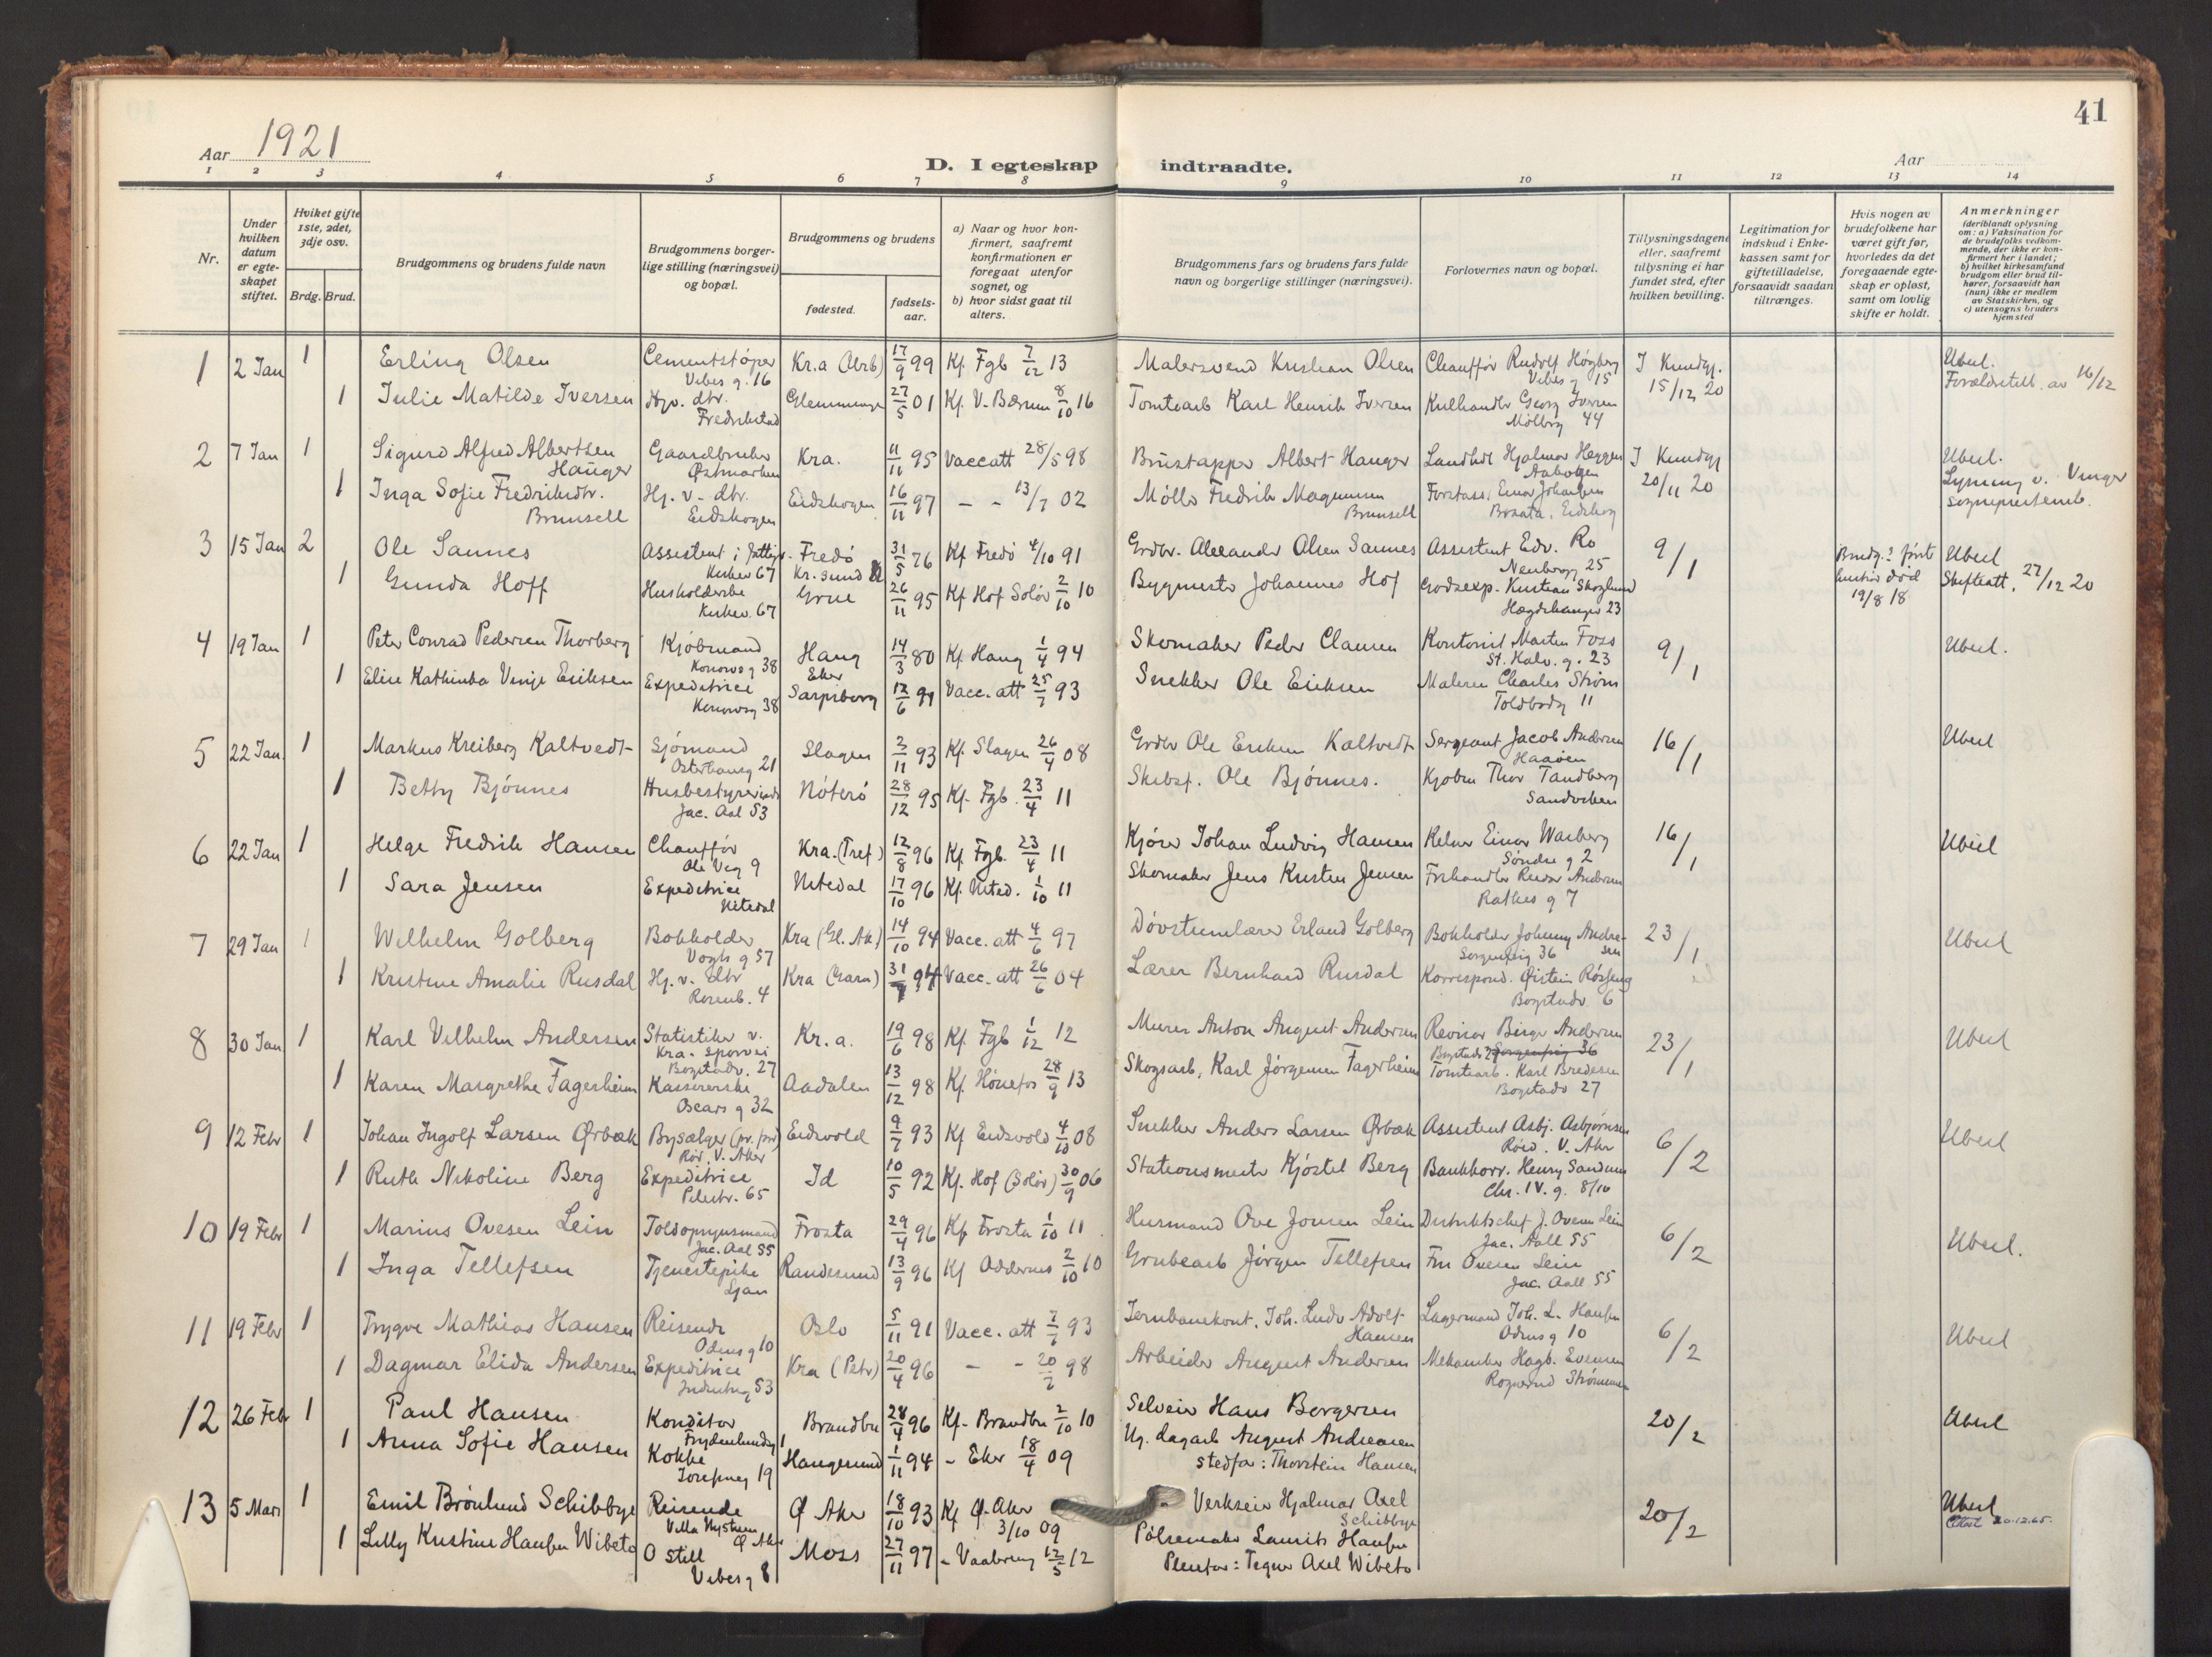 41
Aar 1921
D. I egteskap indtraadte.
Aar
1 2 3 4 5 6 7 8 9 10 11 12 13 14
Nr.
Under hvilken datum er egteskapet stiftet.
Hvilket gifte 1ste, 2det, 3dje osv.
Brdg. Brud.
Brudgommens og brudens fulde navn
Brudgommens borgerlige stilling (næringsvei) og bopæl.
Brudgommens og brudens
fødested.
fødselsaar.
a) Naar og hvor konfirmert, saafremt konfirmationen er foregaat utenfor sognet, og
b) hvor sidst gaat til alters.
Brudgommens fars og brudens fars fulde navn og borgerlige stillinger (næringsvei).
Forlovernes navn og bopæl.
Tillysningsdagene eller, saafremt tillysning ei har fundet sted, efter hvilken bevilling.
Legitimation for indskud i Enkekassen samt for giftetilladelse, forsaavidt saadan tiltrænges.
Hvis nogen av brudefolkene har været gift før, hvorledes da det foregaaende egteskap er opløst, samt om lovlig skifte er holdt.
Anmerkninger (deriblandt oplysning om: a) Vaksination for de brudefolks vedkommende, der ikke er konfirmert her i landet; b) hvilket kirkesamfund brudgom eller brud tilhører, forsaavidt han (hun) ikke er medlem av Statskirken, og c) utensogns bruders hjemsted
1 2 Jan 1 Erling Olsen Cementstøper Vibes g. 16 Kr.a 17/9 99 Kf. Fgb 7/12 13 Malersvend Kristian Olsen Chauffør Rudolf Høgberg Vibes g 15 I Kundgj. 15/12 20 Ubesl. Forældretill. av 16/12
1 Julie Matilde Iversen Hjv. dtr. Fredrikstad Glemminge 27/5 01 Kf. V. Bærum 8/10 16 Tomtearb Karl Henrik Iversen Kulhandler Georg Iversen Mølleg 44
2 7 Jan 1 Sigurd Alfred Albertsen Hauger Gaardbruker Østmarken Kra. 11/11 95 Vaccatt 28/5 98 Brustapper Albert Hauger Landhdl Hjalmar Heggen Aabogen I Kundgj 20/11 20 Ubesl. Lysning v. Vinger sogneprestemb.
1 Inga Sofie Fredriksdtr. Brunsell Hj. v. dtr. Eidskogen Eidskogen 16/11 97 - - 13/7 02 Møller Fredrik Magnussen Brunsell Forstass. Einar Johansen
3 15 Jan 2 Ole Sannes Assistent i Kirkev 67 Fredø Kr.sund 31/5 76 Kf Fredø 4/10 91 Grdbr. Alexander Olsen Sannes Assistent Edv. Ro Neubergg 25 9/1 Brudg.s første hustru død 19/8 18 Ubesl Skifteatt. 27/12 20
1 Gunda Hoff Husholderske Kirkev. 67 Grue 26/11 95 Kf Hof Solør 2/10 10 Bygmester Johannes Hof Godsexp. Kristian Skoglund Hægdehaugsv 23
4 19 Jan 1 Peter Conrad Pedersen Thorberg Kjøbmand Konowsg 38 Haug Eker 14/3 80 Kf. Haug 1/4 94 Skomaker Peder Clausen Kontorist Martin Foss St. Halv. g. 23 9/1 Ubesl.
1 Elise Kathinka Vinje Eriksen Expeditrice Konowsg 38 Sarpsborg 12/6 91 Vacc. att 25/7 93 Snekker Ole Eriksen Maleren Charles Strøm Toldbodg 11
5 22 Jan. 1 Markus Kreiberg Kaltvedt Sjømand Osterhausg 21 Slagen 2/11 93 Kf. Slagen 26/4 08 Grdbr Ole Eriksen Kaltvedt Sergeant Jacob Andersen Haaøen 16/1 Ubesl
1 Betty Bjønnes Husbestyrerinde Jac. Aal 53 Nøterø 28/12 95 Kf. Fgb. 23/4 11 Skibsf. Ole Bjønnes. Kjøbm Thor Tandberg Sandviken
6 22 Jan 1 Helge Fredrik Hansen Chauffør Ole Vig 9 Kra. (Tref) 12/8 96 Kf. Fgb. 23/4 11 Kjører Johan Ludvig Hansen Kelner Einar Warberg Søndre g 2 16/1 Ubesl
1 Sara Jensen Expeditrice Nitedal Nitedal 17/10 96 Kf. Nited. 1/10 11 Skomaker Jens Kristen Jensen Reidar Andersen Rathes g 7
7 29 Jan 1 Wilhelm Golberg Bokholder Vogts g 57 Kra (Gl. Ak.) 14/10 94 Vacc. att 4/6 97 Døvstumlærer Erland Golberg Bokholder Johnny Andresen Sorgenfrig 36 23/1 Ubesl
1 Kristine Amalie Rusdal Hj. v. dtr Rosenb. 4 Kra (Garn) 31/7 94 Vacc. att 26/6 04 Lærer Bernhard Rusdal Korrespond. Øistein Røsseng Bogstadv 6
8 30 Jan 1 Karl Vilhelm Andersen Statistiker v. Kra. sporvei Bogstadv. 27 Kr.a. 19/6 98 Kf. Fgb 1/12 12 Murer Anton August Andersen Revisor Birger Andersen Bogstadv 27 Sorgenfrig 36 23/1 Ubesl
1 Karen Margrethe Fagerheim Kassererske Oscars g 32 Aadalen 13/12 98 Kf. Hønefos 28/9 13 Skogsarb. Karl Jørgensen Fagerheim Tomtearb. Karl Bredesen Bogstadv 27
9 12 Febr 1 Johan Ingolf Larsen Ørbæk Bysælger Rød. V. Aker Eidsvold 9/7 93 Kf Eidsvold 4/10 08 Snekker Anders Larsen Ørbæk Assistent Asbj. Asbjørnsen Røed. V. Aker 6/2 Ubesl
1 Ruth Nikoline Berg Expeditrice Pilestr. 65 Id 10/5 92 Kf. Hof (Solør) 30/9 06 Stationsmester Kjøstel Berg Bankkorr. Henry Sandnes Chr. IV. g. 8/10
10 19 Febr 1 Marius Ovesen Lein Toldopsynsmand Jac. Aal 55 Frosta 29/4 96 Kf Frosta 1/10 11 Husmand Ove Jonsen Lein Distriktschef J. Ovesen Lein Jac. Aall 55 6/2 Ubesl.
1 Inga Tellefsen Tjenestepike Ljan Randesund 13/9 96 Kf Oddernes 2/10 10 Grubearb Jørgen Tellefsen Fru Ovesen Lein Jac. Aall 55
11 19 Febr 1 Trygve Mathias Hansen Reisende Odins g 10 Oslo 5/11 91 Vacc. att 7/7 93 Jernbanekont. Joh. Ludv Adolf Hansen Lagermand Joh. L. Hansen Odins g 10 6/2 Ubesl
1 Dagmar Elida Andersen Expeditrice Industrig 53 Kra (Petr) 20/4 96 - - 20/7 98 Arbeider August Andersen Mekaniker Hagb. Evensen Strømmen
12 26 Feb 1 Paul Hansen Konditor Frydenlundg 1 Brandbu 28/4 96 Kf. Brandbu 2/10 10 Selveier Hans Borgersen 20/2 Ubesl
1 Anna Sofie Hansen Kokke Josefinesg 19 Haugesund 1/11 94 - Eker 18/4 09 Ug. dagarb August Andreasen stedfar: Thorstein Hansen
13 5 Mars 1 Emil Brønlund Schibbye Reisende Villa Nystuen Ø Aker Ø Aker 18/10 93 Kf Ø. Aker 3/10 09 Verkseier Hjalmar Axel Schibbye 20/2 Ubesl Attest 20.12.65.
1 Lilly Kristine Hansen Wibeto O still Vibesg 8 Moss 27/11 97 - Vaalereng 12/5 12 Pølsemaker Laurits Hansen Pleiefar: Tegner Axel Wibeto